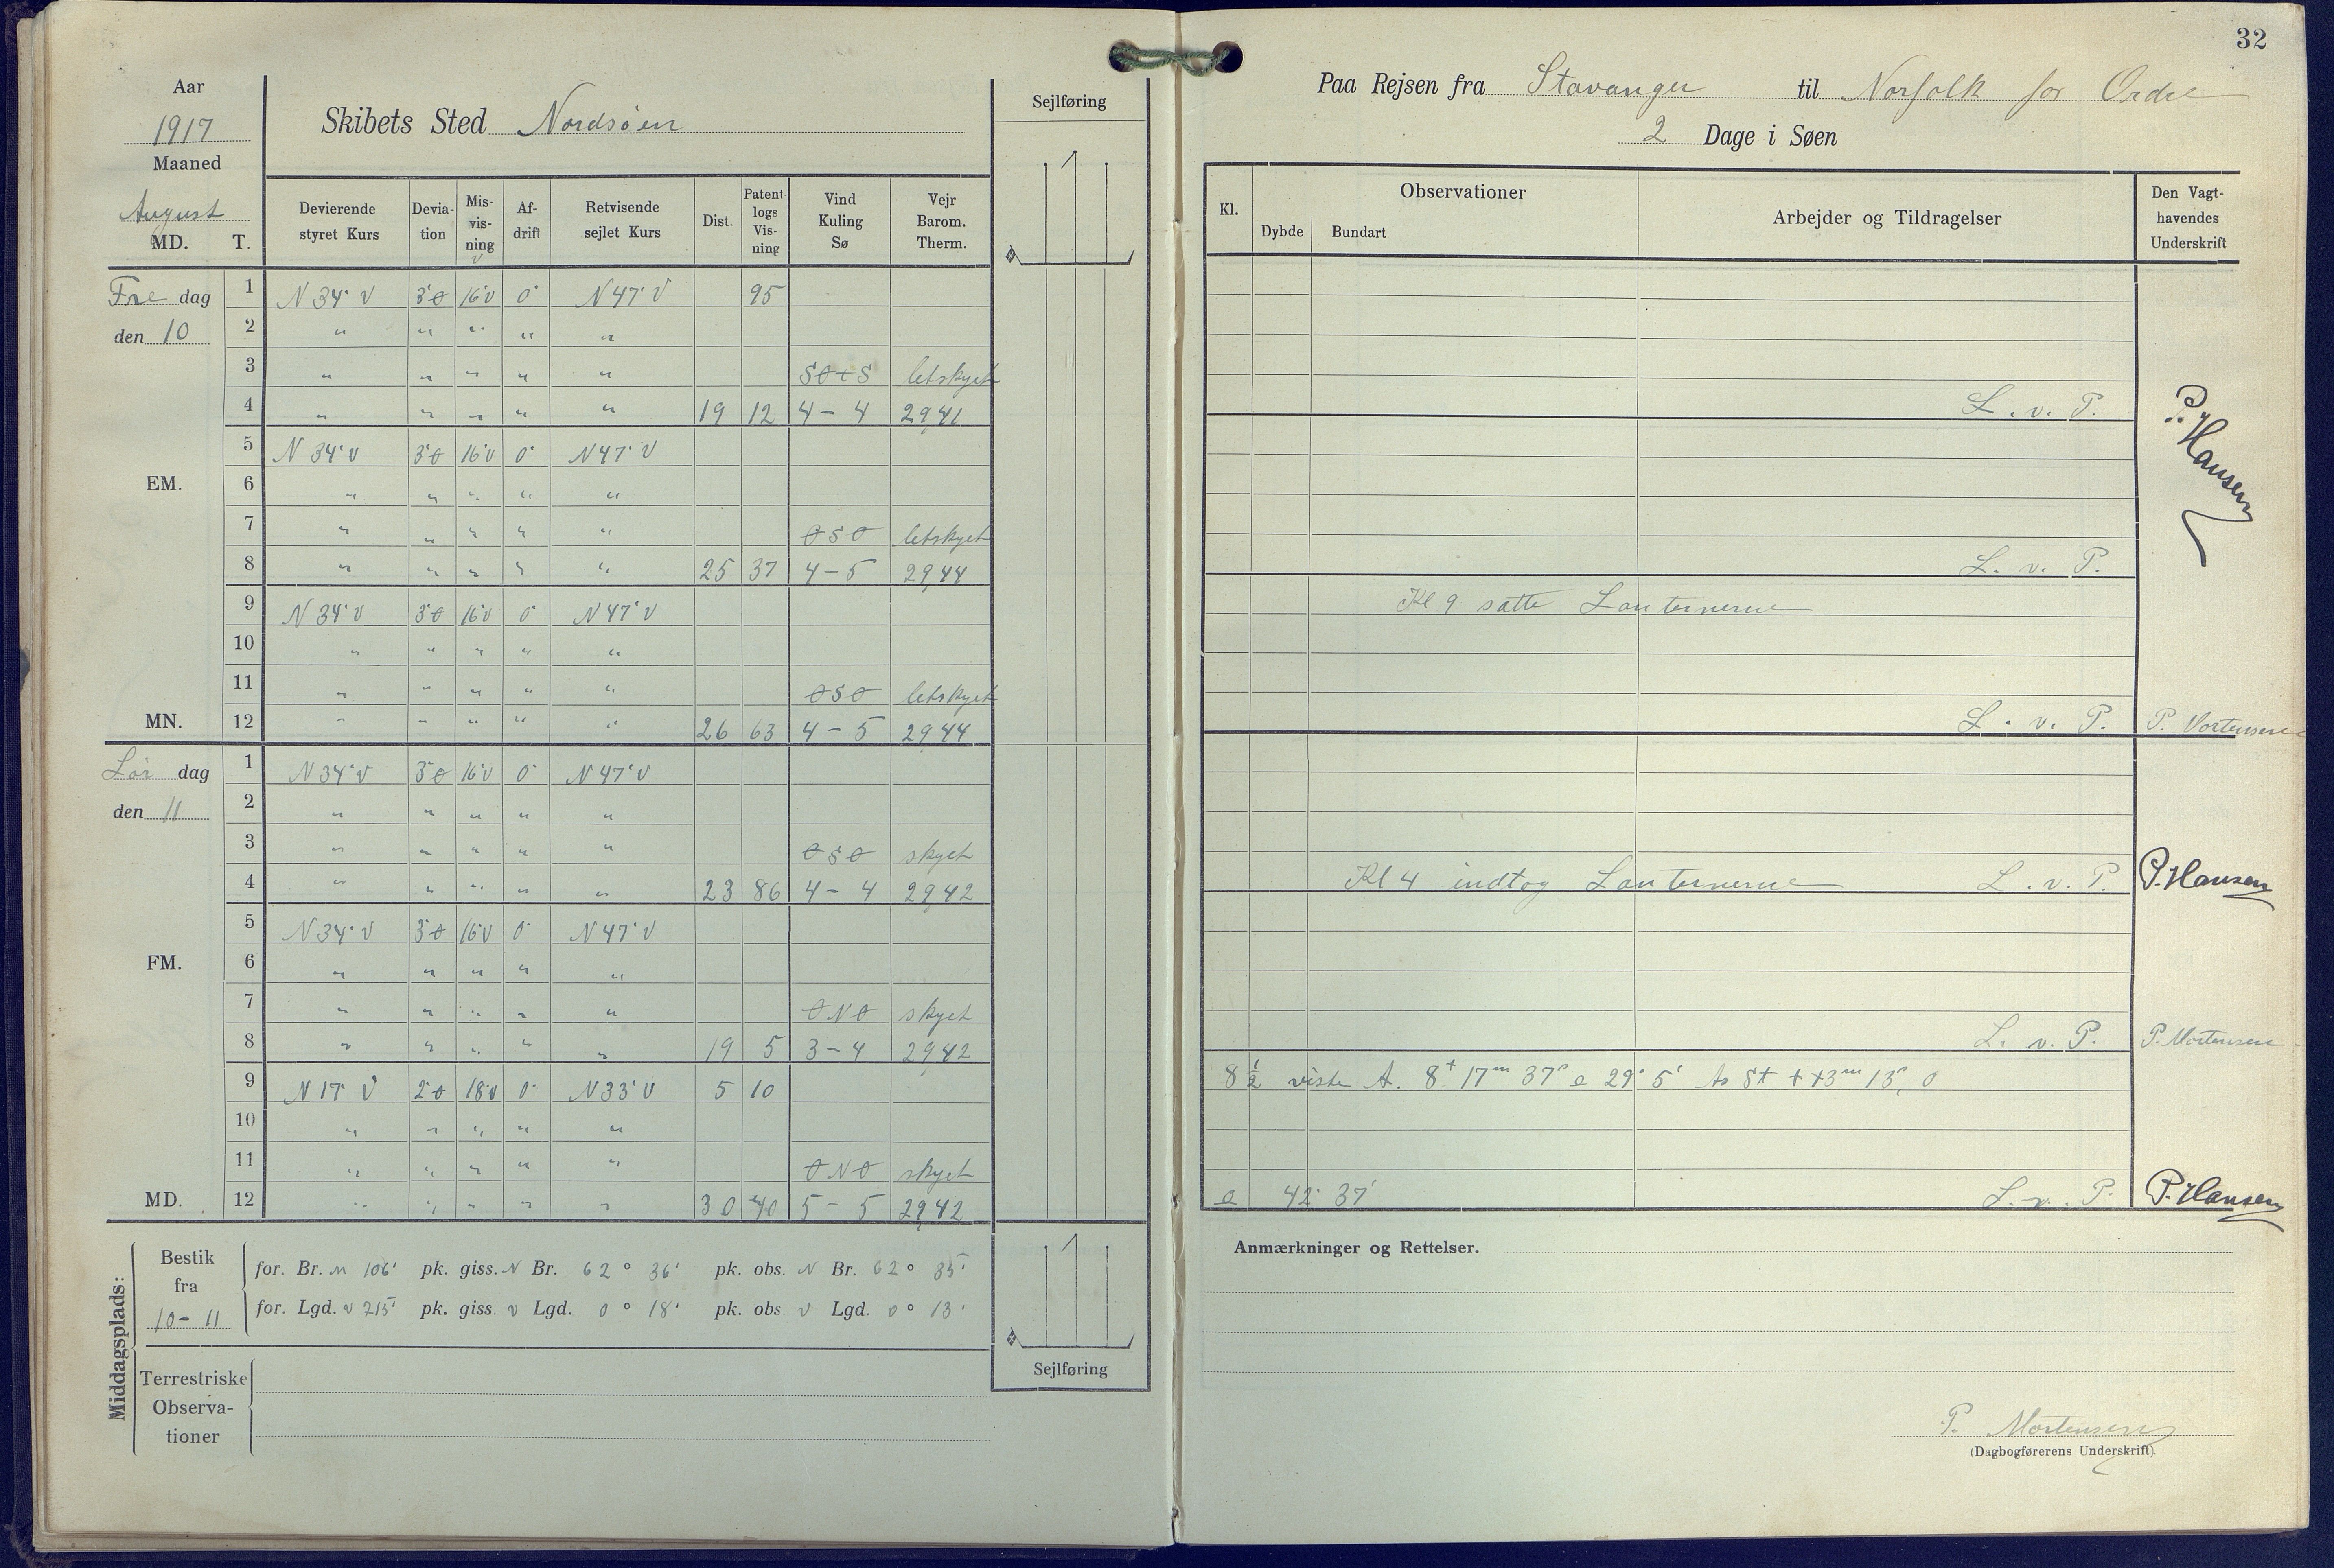 Aar
1917
Maaned
August
MD. T.
Skibets Sted Nordsøen
Sejlføring
Devierende styret Kurs | Devia-tion | Mis-vis-ning | Af-drift | Retvisende sejlet Kurs | Dist. | Patent logs Vis-ning | Vind Kuling Sø | Vejr Barom. Therm.
Fre dag 1 N 34° V 3°Ø 16°V 0° N 47° V 95
den 10 2 " " " " "
3 " " " " " SØtS letskyet
4 " " " " " 19 12 4 - 4 29,41
5 N 34° V 3°Ø 16°V 0° N 47° V
EM. 6 " " " " "
7 " " " " " ØSØ letskyet
8 " " " " " 25 37 4 - 5 29,44
9 N 34° V 3°Ø 16°V 0° N 47° V
10 " " " " "
11 " " " " " ØSØ letskyet
MN. 12 " " " " " 26 63 4 - 5 29,44
Lør dag 1 N 34° V 3°Ø 16°V 0° N 47° V
den 11 2 " " " " "
3 " " " " " ØSØ skyet
4 " " " " " 23 86 4 - 4 29,42
5 N 34° V 3°Ø 16°V 0° N 47° V
FM. 6 " " " " "
7 " " " " " ØNØ skyet
8 " " " " " 19 5 3 - 4 29,42
9 N 17° V 2°Ø 18°V 0° N 33° V 5 10
10 " " " " "
11 " " " " " ØNØ skyet
MD. 12 " " " " " 30 40 5 - 5 29,42
Middagsplads:
Bestik fra 10 - 11
for. Br. N 106' pk. giss. N Br. 62° 36' pk. obs. N Br. 62° 35'
for. Lgd. V 215' pk. giss. V Lgd. 0° 18' pk. obs. V Lgd. 0° 13'
Terrestriske Observa-tioner
Sejlføring
32
Paa Rejsen fra Stavanger til Norfolk for Ordre
2 Dage i Søen
Kl. | Observationer | Dybde | Bundart | Arbejder og Tildragelser | Den Vagt-havendes Underskrift
L. v. P.
P. Hansen
L. v. P.
Kl 9 satte Lanternerne
L. v. P. P. Mortensen
Kl 4 indtog Lanternerne L. v. P. P. Hansen
L. v. P. P. Mortensen
8 1/2 viste A. 8 17m 37s 29° 5' 13
42° 37' L. v. P. P. Hansen
Anmærkninger og Rettelser.
P. Mortensen
(Dagbogførerens Underskrift).